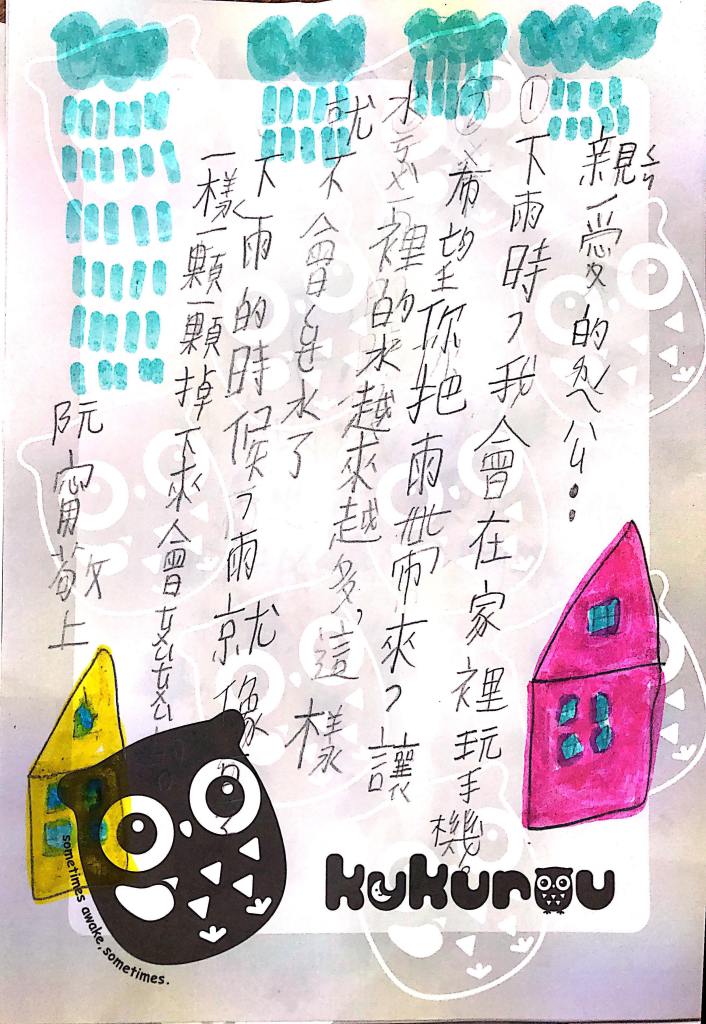 親ㄑㄧㄣ愛的ㄌㄟˊ公:
①下雨時，我會在家裡玩手機。
②希望你把雨帶來，讓
水ㄎㄨˋ裡的水越來越多，這樣
就不會ㄊㄧㄥˊ水了
下雨的時候，雨就像
一樣一顆一顆掉下來會
阮甯敬上
kukurou
sometimes awake, sometimes.